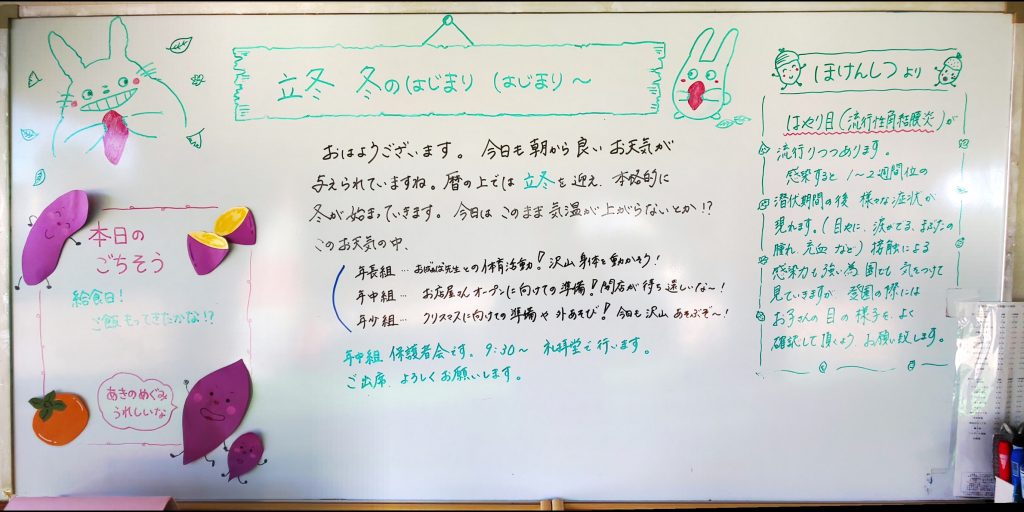 立冬 冬のはじまり はじまり〜
おはようございます。今日も朝から良いお天気が
与えられていますね。暦の上では立冬を迎え、本格的に
冬が始まっていきます。今日はこのまま気温が上がらないとか!?
このお天気の中、
年長組… おばば先生との体育活動!沢山身体を動かそう!
年中組… お店屋さんオープンに向けての準備!開店が待ち遠しいな〜!
年少組… クリスマスに向けての準備や外あそび!今日も沢山あそぶぞ〜!
年中組 保護者会です。9:30〜 礼拝堂で行います。
ご出席、よろしくお願いします。
本日の
ごちそう
給食日!
ご飯もってきたかな!?
あきのめぐみ
うれしいな
ほけんしつより
はやり目(流行性角結膜炎)が
流行りつつあります。
感染すると 1〜2週間位の
潜伏期間の後 様々な症状が
現れます。(目やに、涙がでる、まぶたの
腫れ、充血など) 接触による
感染力も強い為 園でも 気をつけて
見ていきますが、登園の際には
お子さんの目の様子を、よく
確認して頂くよう お願い致します。